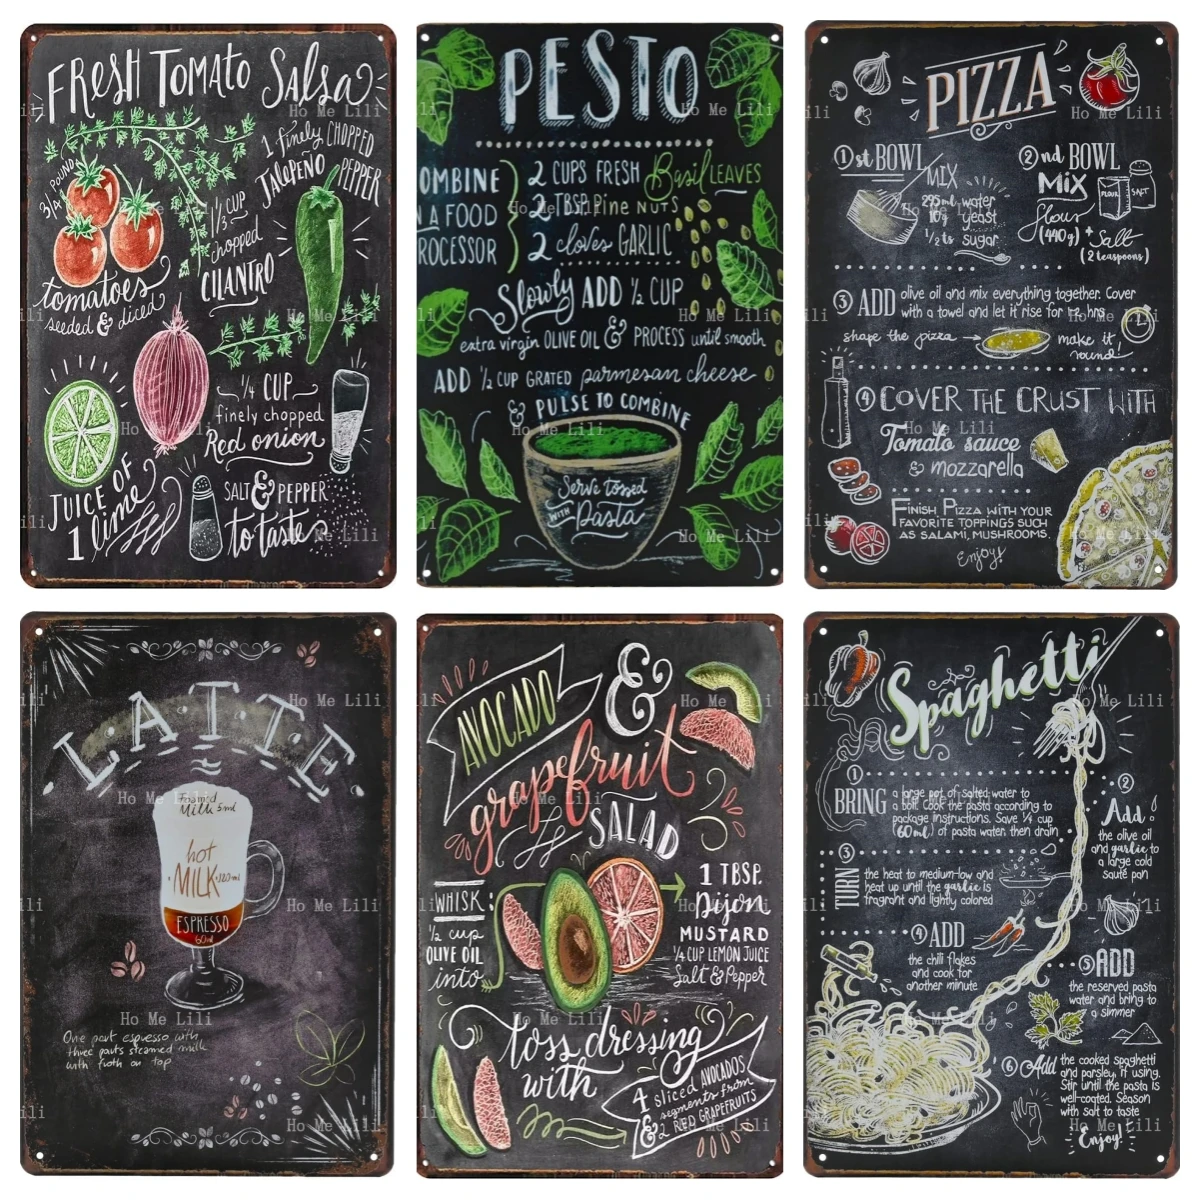 FRESH TOMATO SALSA
3/4 POUND
tomatoes
seeded & diced
1 finely CHOPPED
JALAPEÑO PEPPER
1/3 CUP
chopped
CILANTRO
1/4 CUP
finely chopped
Red onion
JUICE OF
1 lime
SALT & PEPPER
to taste
PESTO
OMBINE
N A FOOD
ROCESSOR
2 CUPS FRESH Basil LEAVES
2 TBSP. Pine NUTS
2 cloves GARLIC
Slowly ADD 1/2 CUP
extra virgin OLIVE OIL & PROCESS until smooth
ADD 1/2 CUP GRATED parmesan cheese
& PULSE TO COMBINE
Serve Tossed
WITH Pasta
PIZZA
1 st BOWL
MIX
295ml water
10g yeast
1/2 ts sugar
2 nd BOWL
MiX
FLOUR
SALT
flour
(440g) +
Salt
(2 teaspoons)
3 ADD olive oil and mix everything together. Cover
with a towel and let it rise for 1-2 hrs
shape the pizza make it
round!
4 COVER THE CRUST WITH
Tomato sauce
& mozzarella
FINISH PIZZA WITH YOUR
FAVORITE TOPPINGS SUCH
AS SALAMI, MUSHROOMS.
Enjoy!
L·A·T·T·E·
Foamed
Milk 5ml
hot
·MILK·120ml
ESPRESSO
60ml
One part espresso with
three parts steamed milk
with froth on top
AVOCADO
&
grapefruit
SALAD
WHISK:
1/2 cup
OLIVE OIL
into
1 TBSP.
Dijon
MUSTARD
1/4 CUP LEMON JUICE
Salt & Pepper
toss dressing
with
4 sliced AVOCADOS
segments from
& 2 RED GRAPEFRUITS
Spaghetti
1
BRING a large pot of salted water to
a boil. Cook the pasta according to
package instructions. Save 1/4 cup
(60ml) of pasta water, then drain
2
Add
the olive oil
and garlic to
a large cold
saute pan
3
TURN the heat to medium-low and
heat up until the garlic is
fragrant and lightly colored
4 ADD
the chili flakes
and cook for
another minute
5 ADD
the reserved pasta
water and bring to
a simmer
6 Add the cooked spaghetti
and parsley, if using.
Stir until the pasta is
well-coated. Season
with salt to taste
Enjoy!
Ho Me Lili